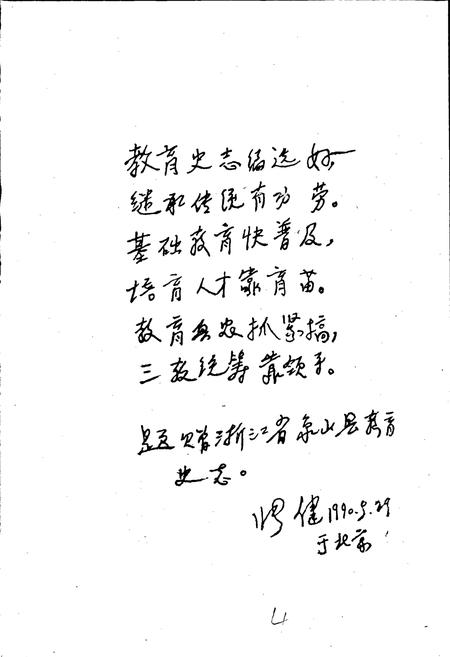 教育史志编选好
继承传统有功劳。
基础教育快普及，
培育人才靠育苗。
教育兴农抓紧搞，
三教统筹靠领手。
题赠浙江省象山县教育
史志。
健 1990.5.29
于北京
4